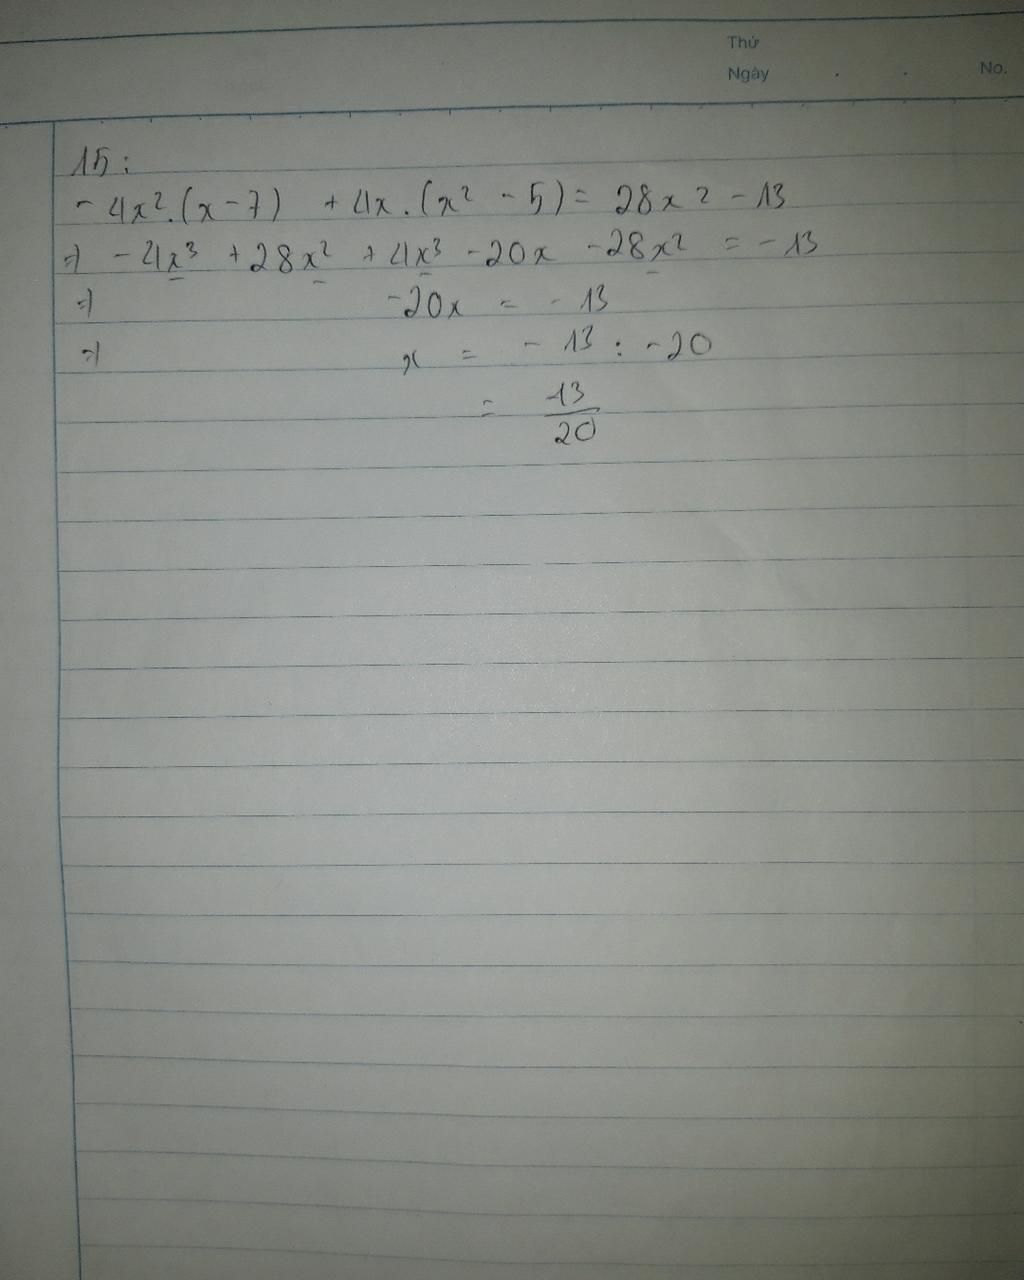 Thứ
Ngày . . No.
15:
- 4x². (x - 7) + 4x . (x² - 5) = 28x² - 13
=) - 4x³ + 28x² + 4x³ - 20x - 28x² = - 13
=) -20x = - 13
=) x = - 13 : -20
= 13/20